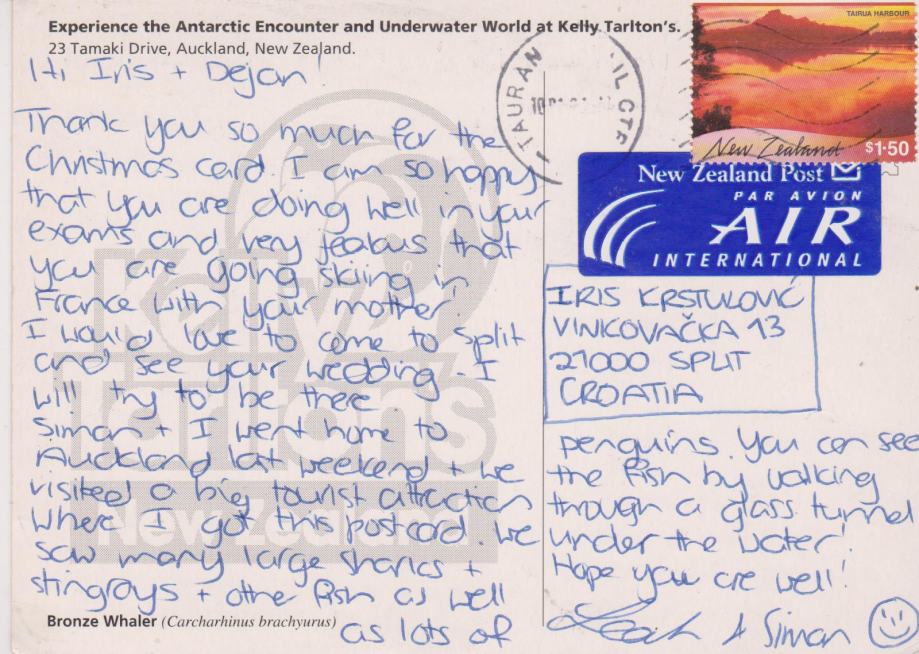 Experience the Antarctic Encounter and Underwater World at Kelly Tarlton's.
23 Tamaki Drive, Auckland, New Zealand.
Hi Iris + Dejan!
Thank you so much for the
Christmas card. I am so happy
that you are doing well in your
exams and very jealous that
you are going skiing in
France with your mother!
I would love to come to Split
and see your wedding - I
will try to be there
Simon + I went home to
Auckland last weekend + we
visited a big tourist attraction
where I got this postcard. We
saw many large sharks +
stingrays + other fish as well
as lots of
Bronze Whaler (Carcharhinus brachyurus)
Kelly
Tarltons
New Zealand
TAURAN
IL CTR
TAIRUA HARBOUR
New Zealand $1·50
New Zealand Post
PAR AVION
AIR
INTERNATIONAL
IRIS KRSTULOVIĆ
VINKOVAČKA 13
21000 SPLIT
CROATIA
penguins. You can see
the fish by walking
through a glass tunnel
under the water!
Hope you are well!
Leah & Simon